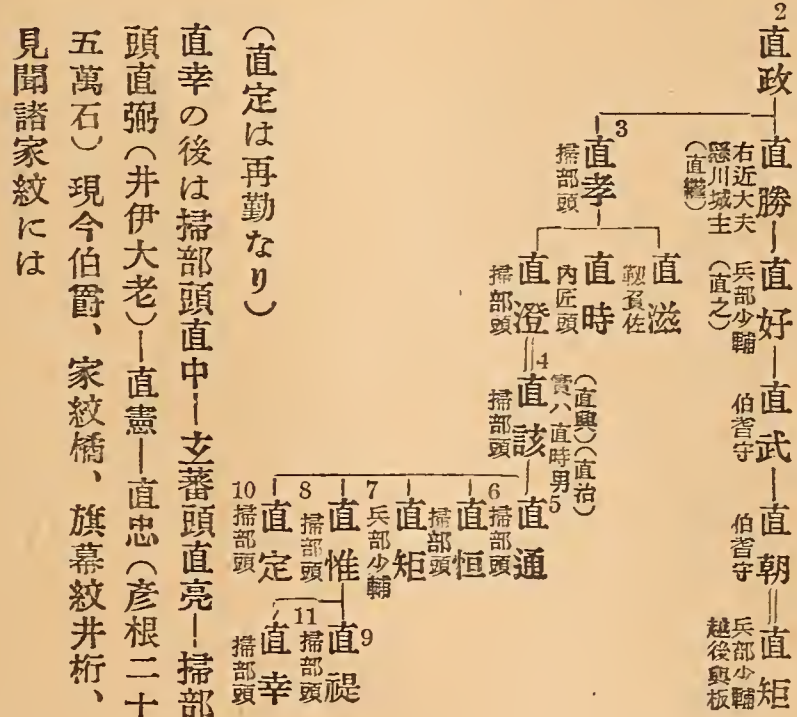 2
直政
直勝
右近大夫
懸川城主
(直繼)
直好
兵部少輔
(直之)
直武
伯耆守
直朝
伯耆守
直矩
兵部少輔
越後與板
3
直孝
掃部頭
直滋
靱負佐
直時
內匠頭
直澄
掃部頭
4
直該
(直興)(直治)
實ハ直時男
掃部頭
5
直通
掃部頭
6
直恒
掃部頭
7
直矩
兵部少輔
8
直惟
掃部頭
10
直定
掃部頭
9
直禔
掃部頭
11
直幸
掃部頭
(直定は再勤なり)
直幸の後は掃部頭直中―玄蕃頭直亮―掃部
頭直弼(井伊大老)―直憲―直忠(彥根二十
五萬石)現今伯爵、家紋橘、旗幕紋井桁、
見聞諸家紋には